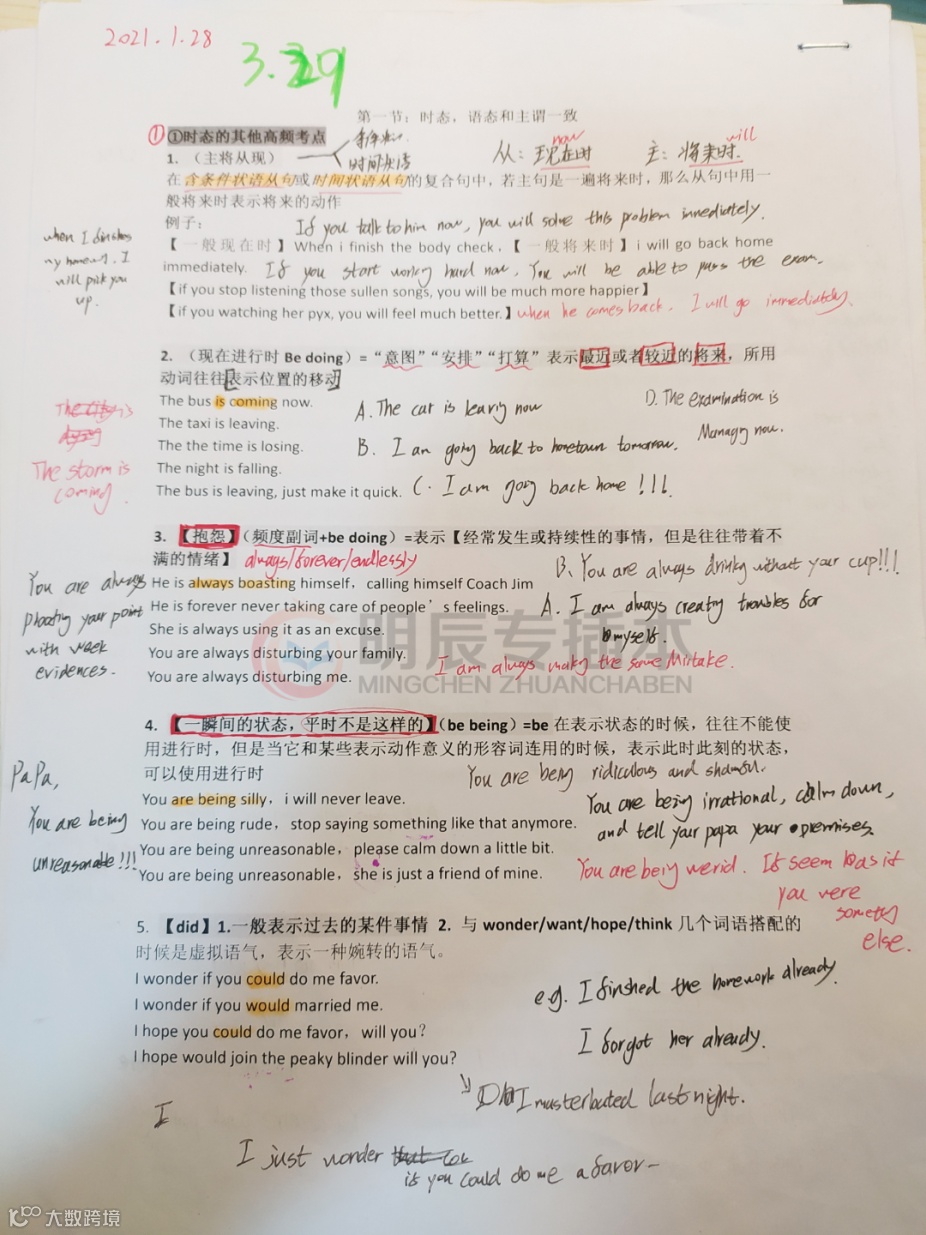 2021.1.28
3.29
第一节：时态，语态和主谓一致
① ①时态的其他高频考点
now
will
1. （主将从现）
时间状语
从：现在时
主：将来时.
在含条件状语从句或时间状语从句的复合句中，若主句是一遍将来时，那么从句中用一
般将来时表示将来的动作
例子：
If you talk to him now, you will solve this problem immediately.
when I finshes
my homework, I
will pick you
up.
【一般现在时】When i finish the body check，【一般将来时】i will go back home
immediately.
If you start working hard now, You will be able to pass the exam.
【if you stop listening those sullen songs, you will be much more happier】
【if you watching her pyx, you will feel much better.】
when he comes back, I will go immediately.
2. （现在进行时 Be doing）= “意图”“安排”“打算” 表示最近或者较近的将来，所用
动词往往表示位置的移动
The bus is coming now.
The taxi is leaving.
The the time is losing.
The night is falling.
The bus is leaving, just make it quick.
A. The car is leaving now
B. I am going back to hometown tomorrow.
C. I am going back home !!!.
D. The examination is
now.
The storm is
coming.
3. 【抱怨】（频度副词+be doing）=表示【经常发生或持续性的事情，但是往往带着不
满的情绪】
always/forever/endlessly
He is always boasting himself，calling himself Coach Jim
He is forever never taking care of people’s feelings.
She is always using it as an excuse.
You are always disturbing your family.
You are always disturbing me.
B. You are always drinking without your cup!!!
A. I am always creating troubles for
myself.
I am always making the same Mistake.
You are always
your point
with week
evidences.
明辰专插本
MINGCHEN ZHUANCHABEN
4. 【一瞬间的状态，平时不是这样的】（be being）=be 在表示状态的时候，往往不能使
用进行时，但是当它和某些表示动作意义的形容词连用的时候，表示此时此刻的状态，
可以使用进行时
You are being ridiculous and shameful.
You are being silly，i will never leave.
You are being rude，stop saying something like that anymore.
You are being unreasonable，please calm down a little bit.
You are being unreasonable，she is just a friend of mine.
You are being irrational, calm down,
and tell your papa your premises.
You are being werid. It seem as if
you were
else.
PaPa,
You are being
unreasonable!!!
5. 【did】1.一般表示过去的某件事情 2. 与 wonder/want/hope/think 几个词语搭配的
时候是虚拟语气，表示一种婉转的语气。
I wonder if you could do me favor.
I wonder if you would married me.
I hope you could do me favor，will you？
I hope would join the peaky blinder will you?
e.g. I finshed the homework already.
I forgot her already.
I masterbated last night.
I
I just wonder
if you could do me a favor-
大数跨境